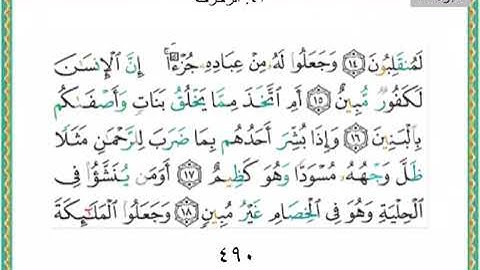 لَمُنقَلِبُونَ ١٤ وَجَعَلُوا لَهُ مِنْ عِبَادِهِ جُزْءًا ۚ إِنَّ الْإِنسَانَ
لَكَفُورٌ مُّبِينٌ ١٥ أَمِ اتَّخَذَ مِمَّا يَخْلُقُ بَنَاتٍ وَأَصْفَاكُم
بِالْبَنِينَ ١٦ وَإِذَا بُشِّرَ أَحَدُهُم بِمَا ضَرَبَ لِلرَّحْمَٰنِ مَثَلًا
ظَلَّ وَجْهُهُ مُسْوَدًّا وَهُوَ كَظِيمٌ ١٧ أَوَمَن يُنَشَّؤُا فِي
الْحِلْيَةِ وَهُوَ فِي الْخِصَامِ غَيْرُ مُبِينٍ ١٨ وَجَعَلُوا الْمَلَائِكَةَ
٤٩٠